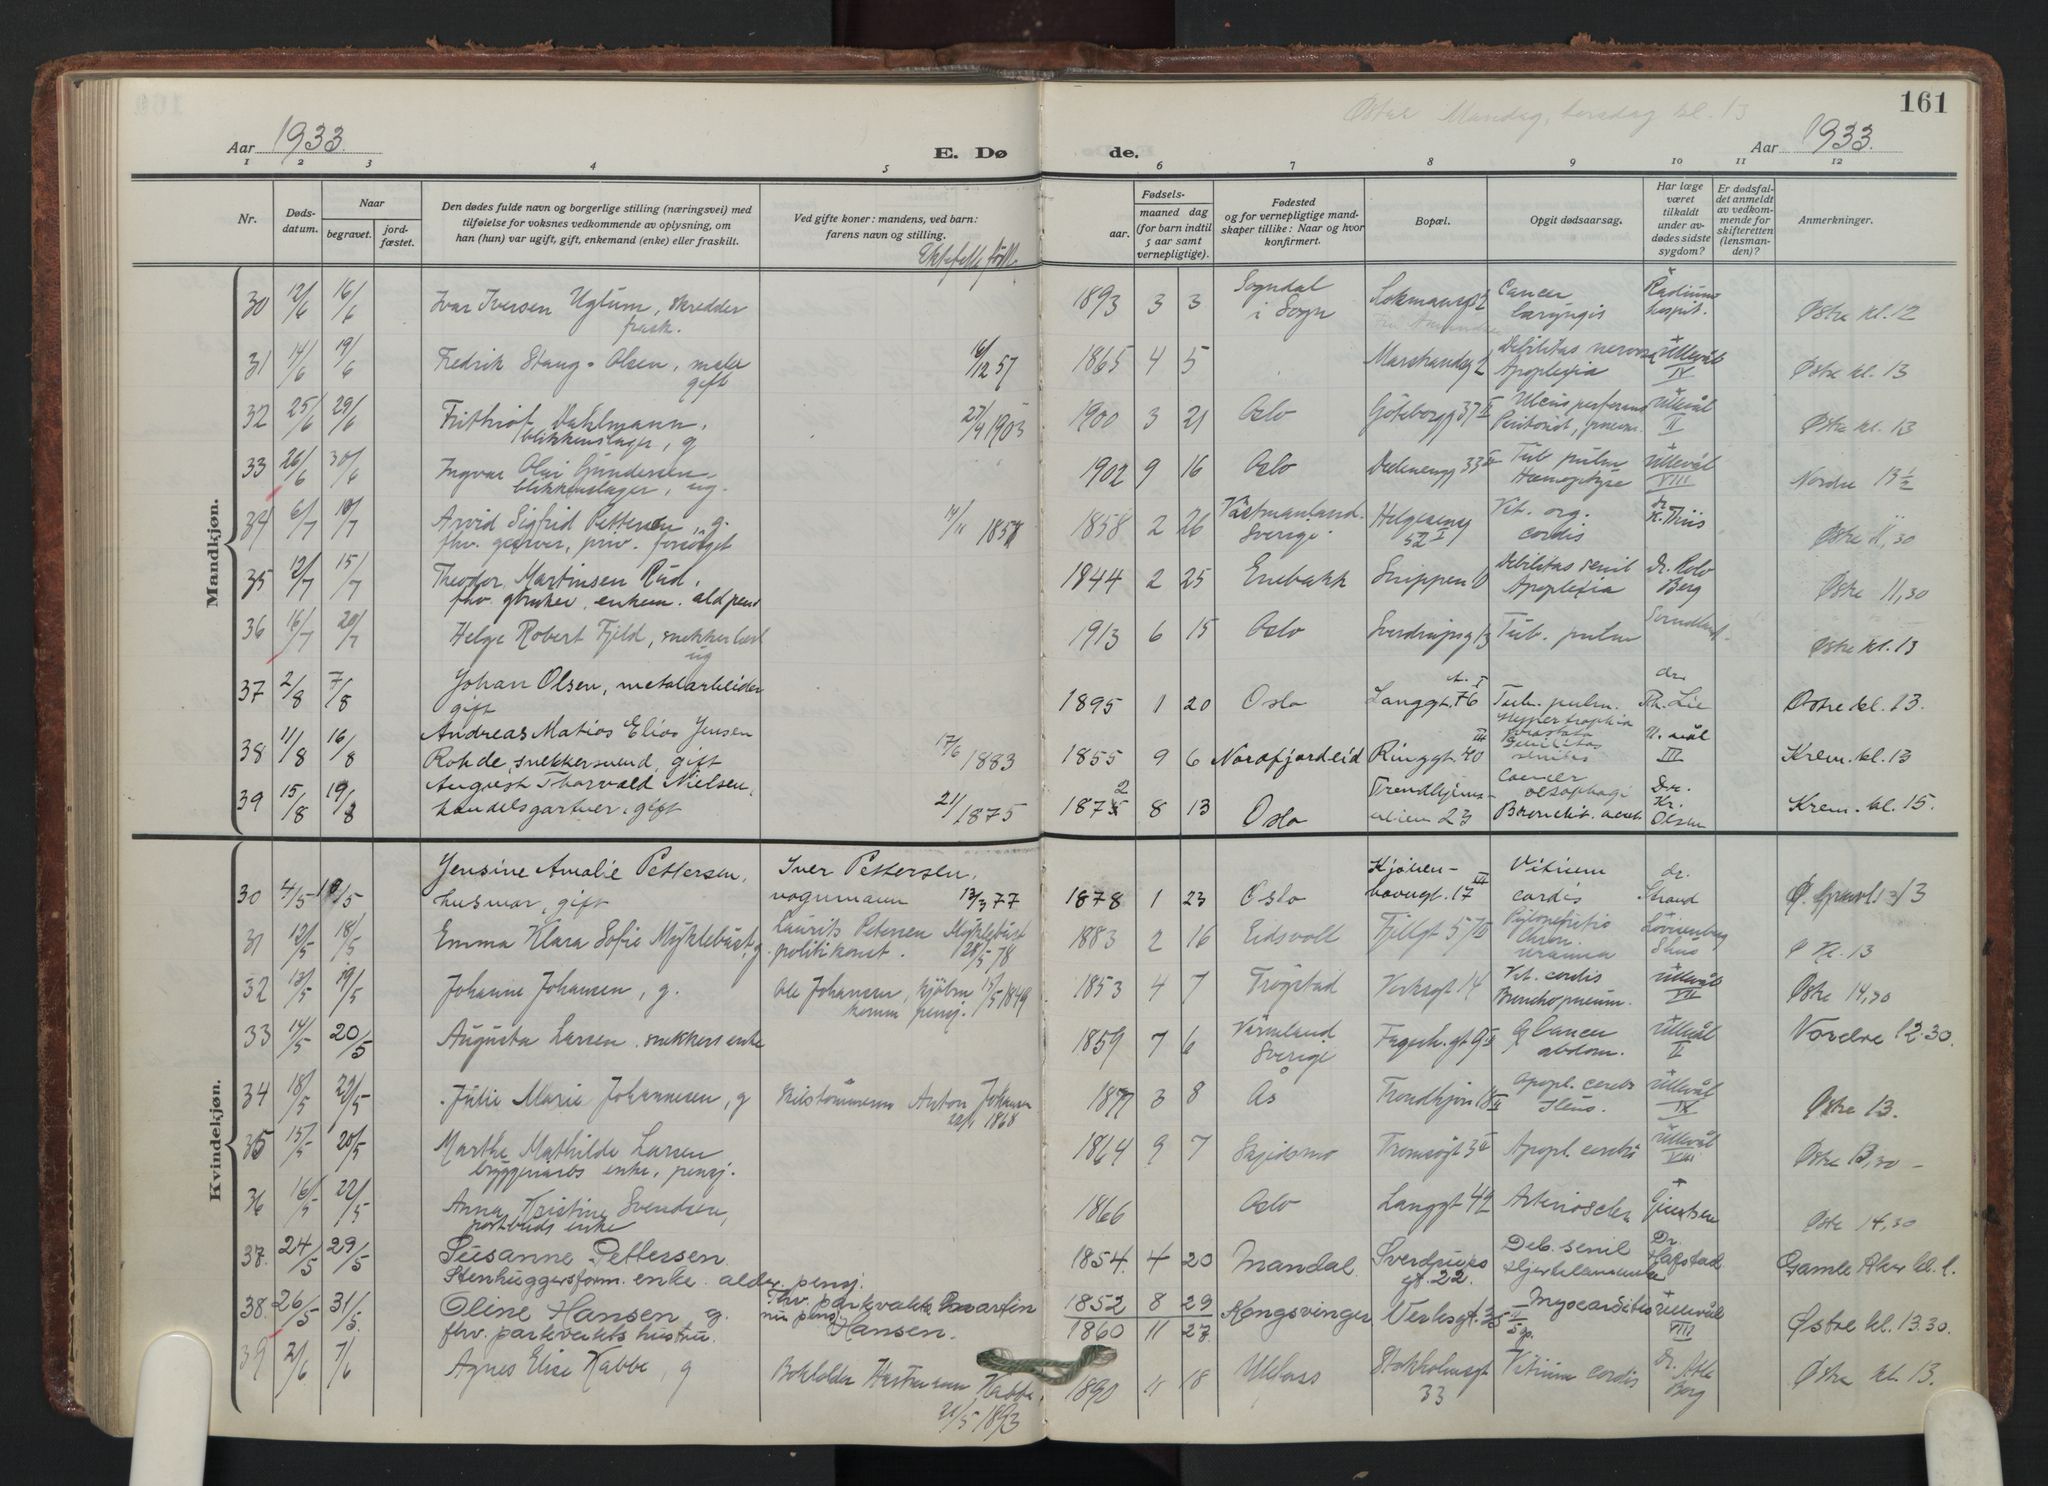 161
Østre Mandag, torsdag kl. 13
Aar 1933.
E. Dø
de.
Aar 1933.
1 2 3 4 5 6 7 8 9 10 11 12
Nr.
Døds-
datum.
Naar
begravet.
jord-
fæstet.
Den dødes fulde navn og borgerlige stilling (næringsvei) med
tilføielse for voksnes vedkommende av oplysning, om
han (hun) var ugift, gift, enkemand (enke) eller fraskilt.
Ved gifte koner: mandens, ved barn:
farens navn og stilling.
Fødsels-
aar.
maaned dag
(for barn indtil
5 aar samt
vernepligtige).
Fødested
og for vernepligtige mand-
skaper tillike: Naar og hvor
konfirmert.
Bopæl.
Opgit dødsaarsag.
Har læge
været
tilkaldt
under av-
dødes sidste
sygdom?
Er dødsfal-
det anmeldt
av vedkom-
mende for
skifteretten
(lensman-
den)?
Anmerkninger.
Mandkjøn.
30 12/6 16/6 Ivar Iversen Uglum, skredder 1893 3 3 Sogndal i Sogn Cancer laryngis Radium hospit. Østre kl. 12
31 14/6 19/6 Fredrik Stang-Olsen, maler gift 16/12 57 1865 4 5 Marstrandg 2 Debilitas Apoplexia Ullevål IV Østre kl. 13
32 25/6 29/6 Frithiof Dahlmann, blikkenslager, g 27/4 1903 1900 3 21 Oslo Göteborgg 37 II Ulcus perforans Peritonit, Ullevål II Østre kl. 13
33 26/6 30/6 Ingvar Olai Gundersen blikkenslager, ug. 1902 9 16 Oslo 33 Tub. pulm Hæmoptyse Ullevål VIII Nordre 13 1/2
34 6/7 10/7 Arvid Sigfrid Pettersen, g. fhv. garver, priv. forsörget 1858 2 26 Västmanland. Sverige. Helgesensg 52 I Vit. org. cordis dr. K. Thiis Østre 11,30
35 12/7 15/7 Theodor Martinsen Rud, fhv. gbruker, enkem. ald pens 1844 2 25 Enebakk Snippen 10 Debilitas senil Apoplexia Dr. Rolv Berg Østre 11,30
36 16/7 20/7 Helge Robert Fjeld, snekkerlærl ug 1913 6 15 Oslo Sverdrupsg 13 Tub. pulm Østre kl. 13
37 2/8 7/8 Johan Olsen, metalarbeider gift 1895 1 20 Oslo Langgt. 76 Tub. pulm. dr. Th. Lie Østre kl. 13.
38 11/8 16/8 Andreas Matias Elias Jensen Rohde, snekkersvend, gift 17/6 1883 1855 9 6 Nordfjordeid Ringgt. 40 III Hypertrophia prostata Senilitas U. vål III Krem. kl. 13
39 15/8 19/8 August Thorvald Nielsen, handelsgartner, gift 21/1 1875 1875 2 8 13 Oslo Trondhjems- veien 23 Cancer oesophagi Bronchit. acut. Dr. Kr. Olsen Krem. kl. 15.
Kvindekjøn.
30 4/5 Jensine Amalie Pettersen, husmor, gift Iver Pettersen, vognmann 13/3 77 1878 1 23 Oslo Kjøben- havngt. 17 III Vitium cordis dr. Strand
31 12/5 18/5 Emma Klara Sofie Myklebust, g. Laurits Petersen Myklebust politikonst. 28/5 78 1883 2 16 Eidsvoll Fjellgt 5 Pyelonefritis Chron. Uræmia Lovisenberg Ø Kl. 13
32 13/5 19/5 Johanne Johansen, g. Ole Johansen, komm pensj. 1853 4 7 Trögstad Verksgt 14 Vit. cordis Bronchopneum. Ullevål VII Østre 14,30
33 14/5 20/5 Augusta Larsen, snekkers enke 1859 7 6 Värmland Sverige Fagerh. gt 9 Cancer abdom. Ullevål II Nordre 12.30.
34 18/5 22/5 Julie Marie Johannesen, g Skilstömmerm Anton Johannsen 1868 1877 3 8 Ås Trondhjem 18 II Apopl. cerebr. Ileus. Ullevål IX Østre 13.
35 15/5 20/5 Marthe Mathilde Larsen byggemarbs enke, pensj. 1864 9 7 Skjedsmo Tromsögt 3 Apopl. cerebri Ullevål VIII Østre 13,30
36 16/5 22/5 Anna Kristine Svendsen, postbuds enke 1866 Oslo Langgt 42 Arterioscler Giertsen Østre 14,30
37. 24/5 29/5 Susanne Pettersen Stenhuggersform. enke. alder. pensj. 1854. 4 20 Mandal. Sverdrups gt. 22. Deb. senil Hjertelammelse Dr. Hafstad Gamle Aker kl. 1.
38. 26/5 31/5. Oline Hansen g. fhv. parkvakts hustru. Fhv. parkvakt Martin nu pensj. Hansen. 1852 8 29 1860 11 27. Kongsvinger Verksgt. 35 II Myocarditis Ullevål VIII Østre kl. 13.30.
39 2/6 7/6 Agnes Elise Kabbe, g Bokholder Hartmann Kabbe, 21/5 1893 1890 11 18 Ullerss Stockholmsgt 33 Vitium cordis Dr. Atle Berg Østre kl. 13.